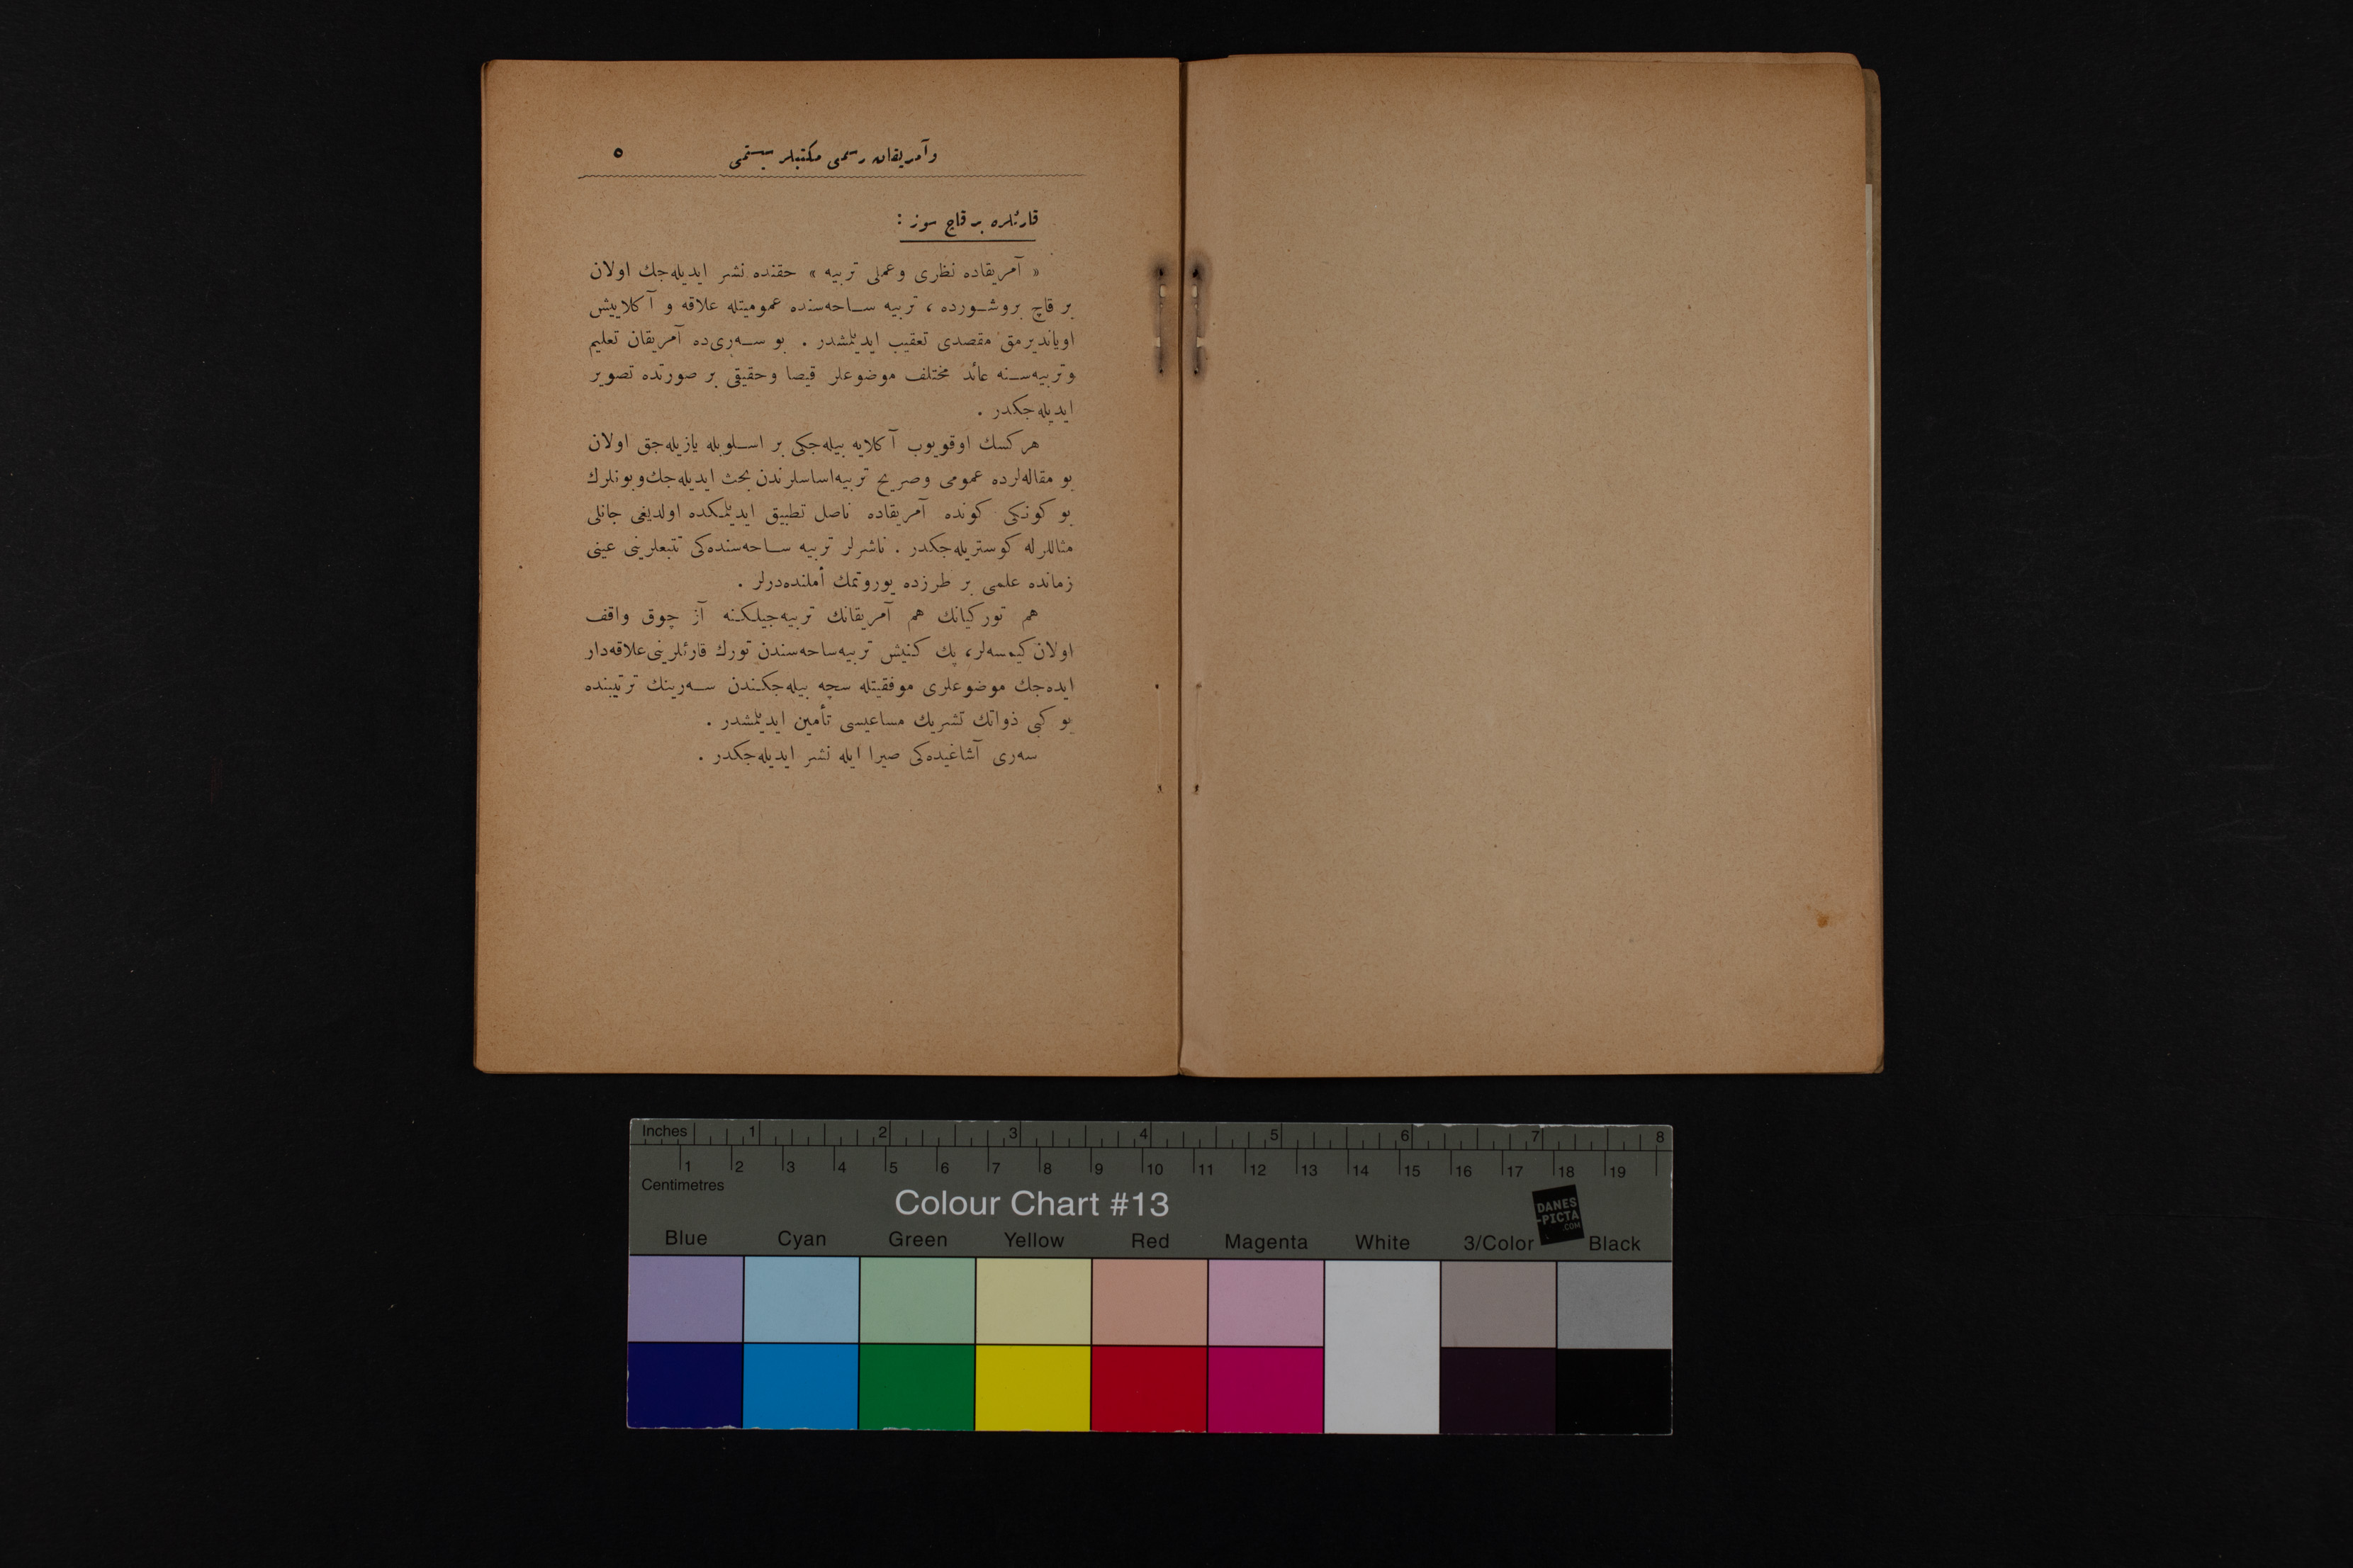 وآمریقان رسمی مکتبلر سیستمی ٥
قارئلره بر قاچ سوز :
« آمریقاده نظری وعملی تربیه » حقنده نشر ایدیله‌جك اولان
بر قاچ بروشورده ، تربیه ساحه‌سنده عمومیتله علاقه و آکلاییش
اویاندیرمق مقصدی تعقیب ایدیلمشدر . بو سه‌ری‌ده آمریقان تعلیم
وتربیه‌سنه عائد مختلف موضوعلر قیصا وحقیقی بر صورتده تصویر
ایدیله‌جکدر .
هرکسك اوقویوب آکلایه بیله‌جکی بر اسلوبله یازیله‌جق اولان
بو مقاله‌لرده عمومی وصریح تربیه‌اساسلرندن بحث ایدیله‌جك‌وبونلرك
بو کونکی کونده آمریقاده ناصل تطبیق ایدیلمکده اولدیغی جانلی
مثاللرله کوستریله‌جکدر . ناشرلر تربیه ساحه‌سنده‌کی تتبعلرینی عینی
زمانده علمی بر طرزده یوروتمك أملنده‌درلر .
هم تورکیانك هم آمریقانك تربیه‌جیلکنه آز چوق واقف
اولان کیمسه‌لر، پك کنیش تربیه‌ساحه‌سندن تورك قارئلرینی‌علاقه‌دار
ایده‌جك موضوعلری موفقیتله سچه بیله‌جکندن سه‌رینك ترتیبنده
بو کبی ذواتك تشریك مساعیسی تأمین ایدیلمشدر .
سه‌ری آشاغیده‌کی صیرا ایله نشر ایدیله‌جکدر .
Inches 1 2 3 4 5 6 7 8
1 2 3 4 5 6 7 8 9 10 11 12 13 14 15 16 17 18 19
Centimetres
Colour Chart #13
DANES
-PICTA
.COM
Blue Cyan Green Yellow Red Magenta White 3/Color Black